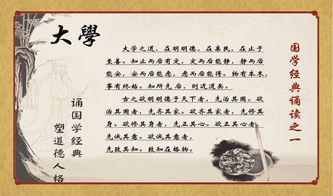 大學
大学之道，在明明德，在亲民，在止于
至善。知止而后有定，定而后能静，静而后
能安，安而后能虑，虑而后能得。物有本末，
事有终始。知所先后，则近道矣。
古之欲明明德于天下者，先治其国。欲治
其国者，先齐其家。欲齐其家者，先修其
身。欲修其身者，先正其心。欲正其心者，
先诚其意。欲诚其意者，
先致其知。致知在格物。
国学经典诵读之一
诵国学经典
塑道德人格